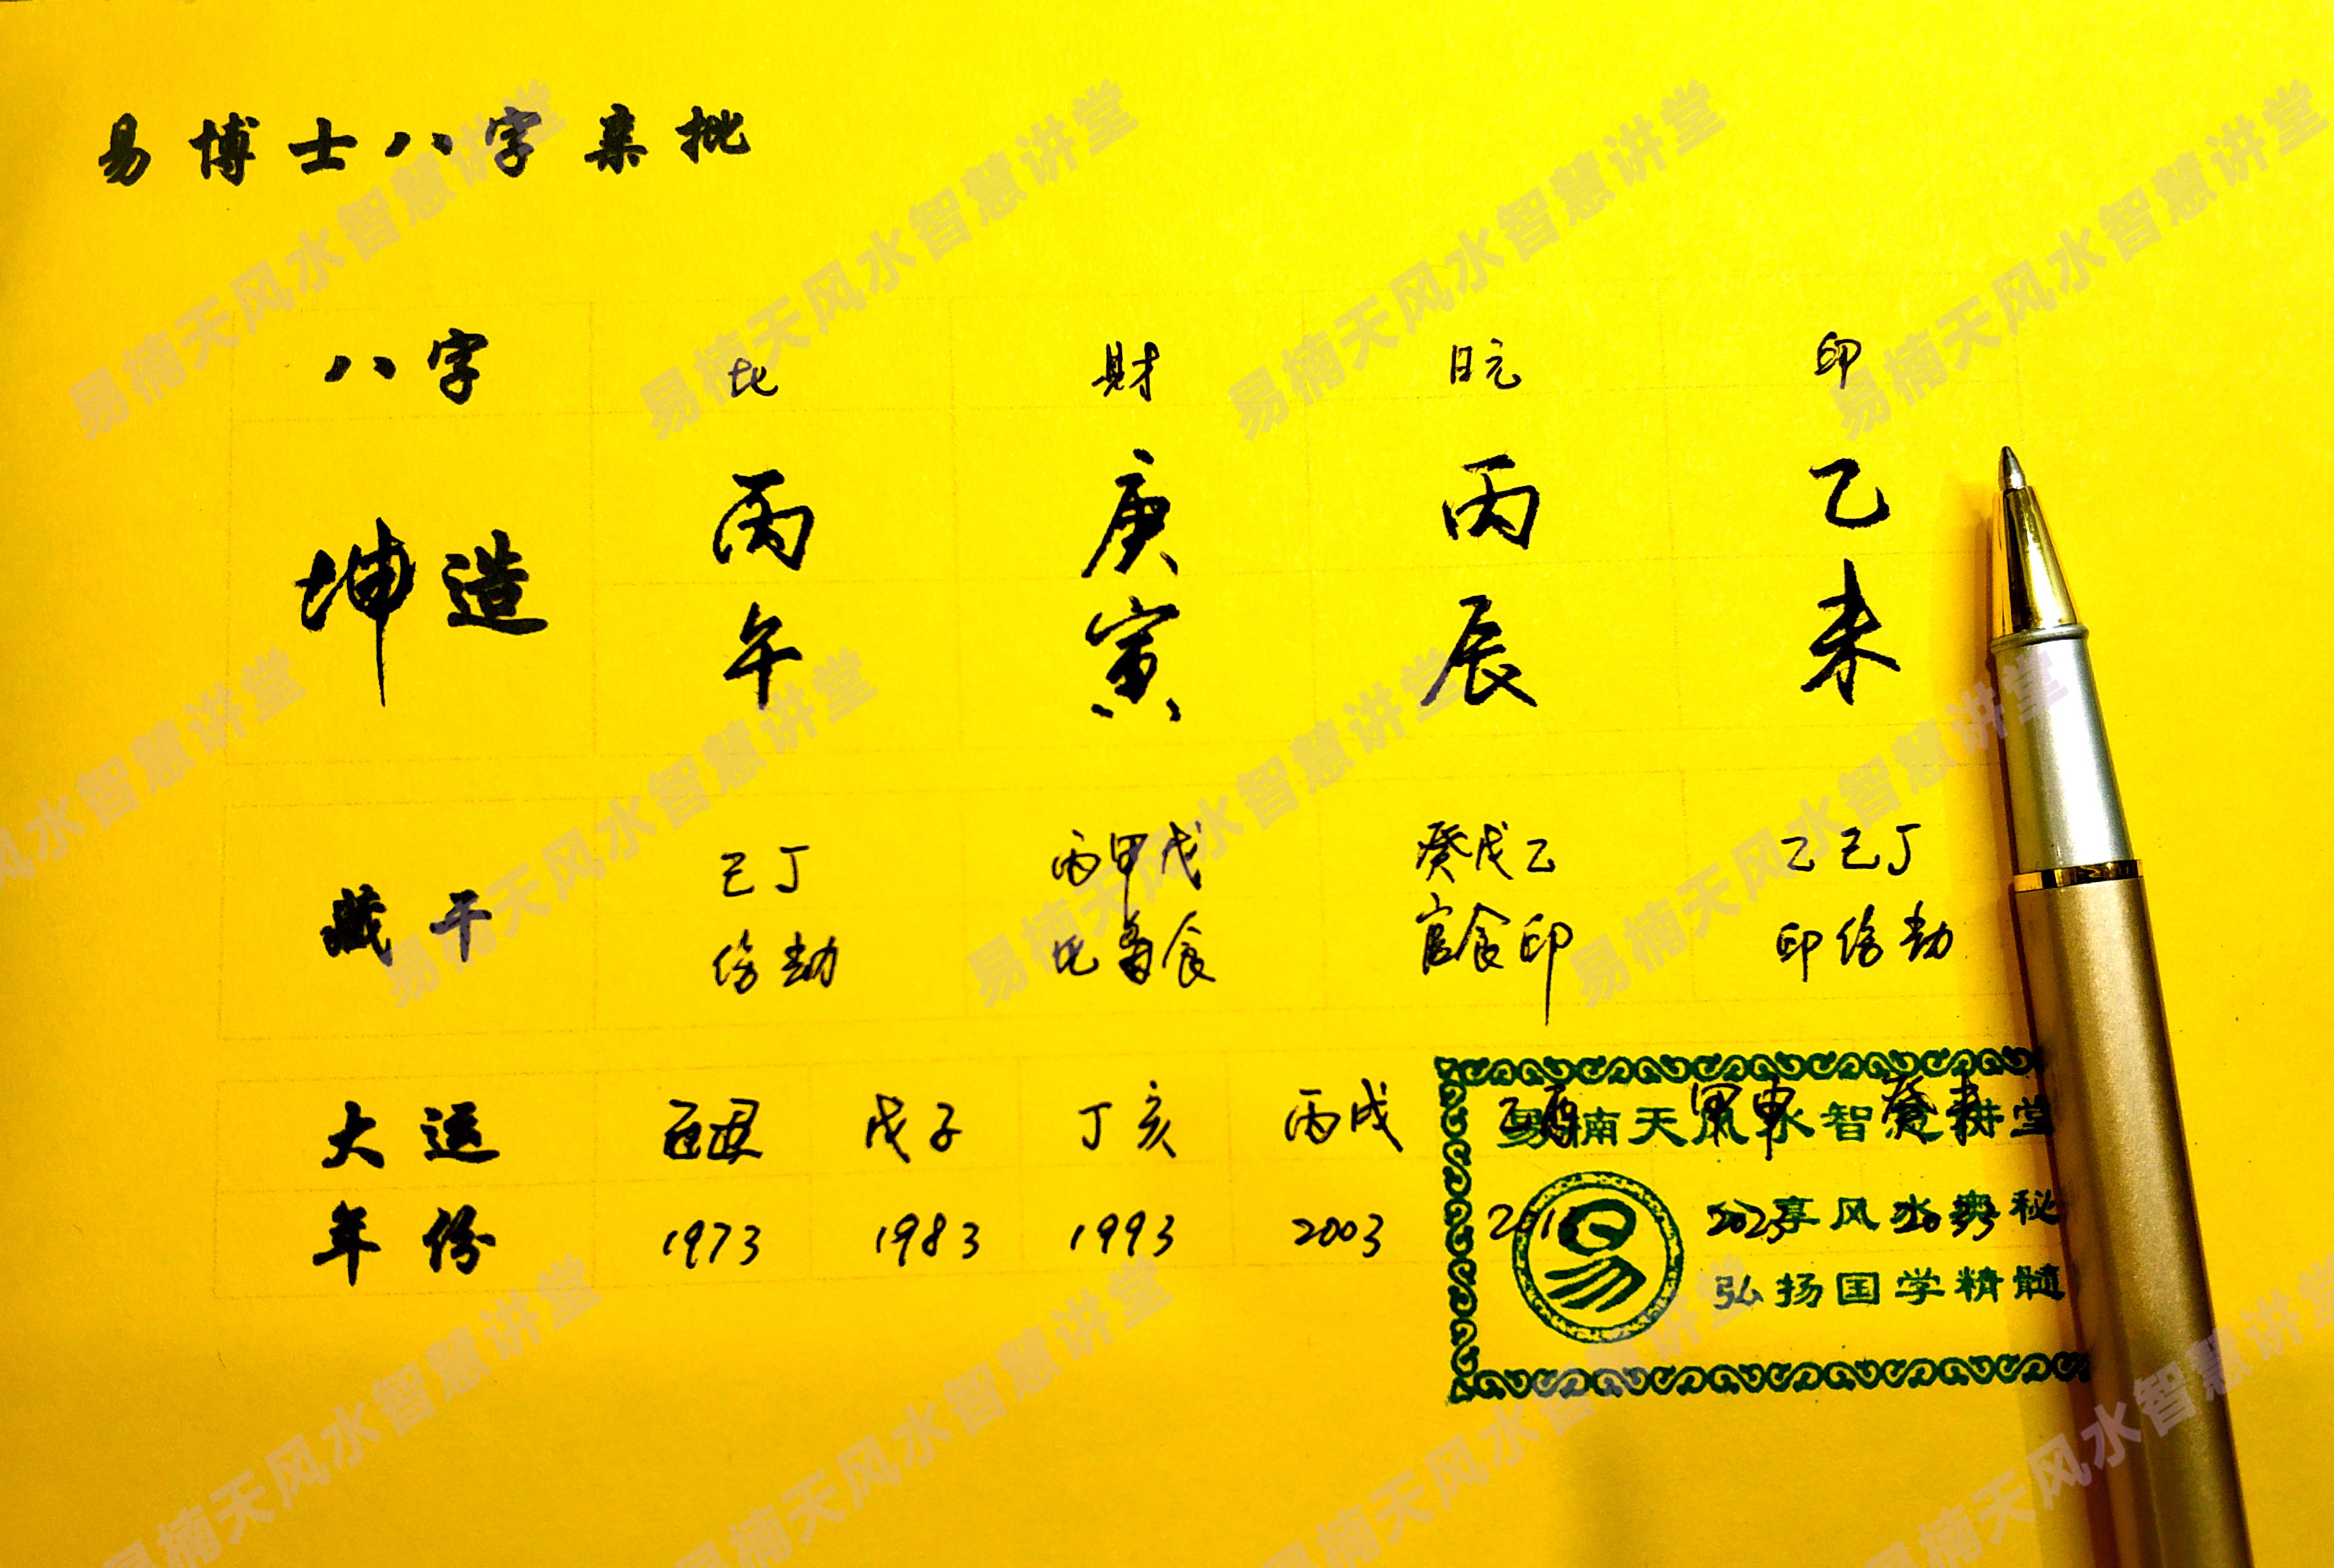 易博士八字亲批
八字 比 财 日元 印
坤造 丙 庚 丙 乙
午 寅 辰 未
藏干 己丁 丙甲戊 癸戊乙 乙己丁
伤劫 比枭食 官食印 印伤劫
大运 己丑 戊子 丁亥 丙戌 乙酉 甲申 癸未
年份 1973 1983 1993 2003 2013 2023
易楠天风水智慧讲堂
享风水奥秘
弘扬国学精髓
易
易楠天风水智慧讲堂